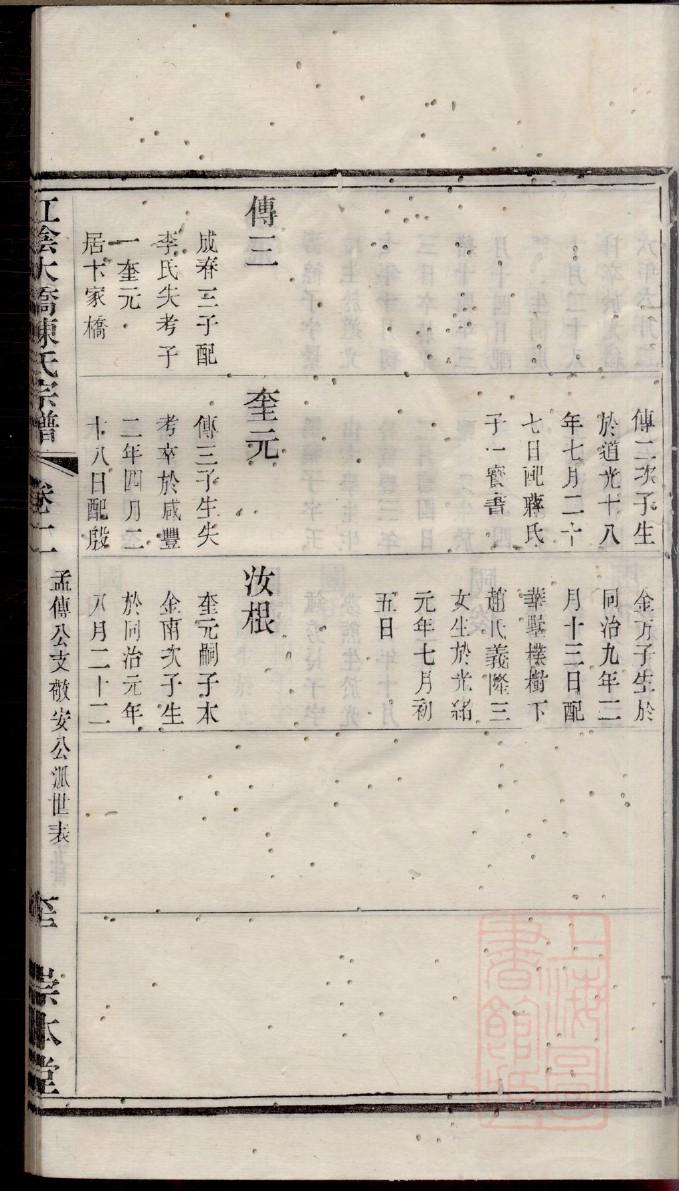 傳三
成春三子配
李氏失考子
一奎元
居卞家橋
傳二次子生
於道光十八
年七月二十
七日配蔣氏
子一寶書
奎元
傳三子生失
考卒於咸豐
二年四月二
十八日配殷
金方子生於
同治九年二
月十三日配
華墅樸樹下
趙氏義隆三
女生於光緒
元年七月初
五日
汝根
奎元嗣子本
金南次子生
於同治元年
八月二十二
江陰大橋陳氏宗譜
卷二
孟傳公支敬安公派世表
崇本堂